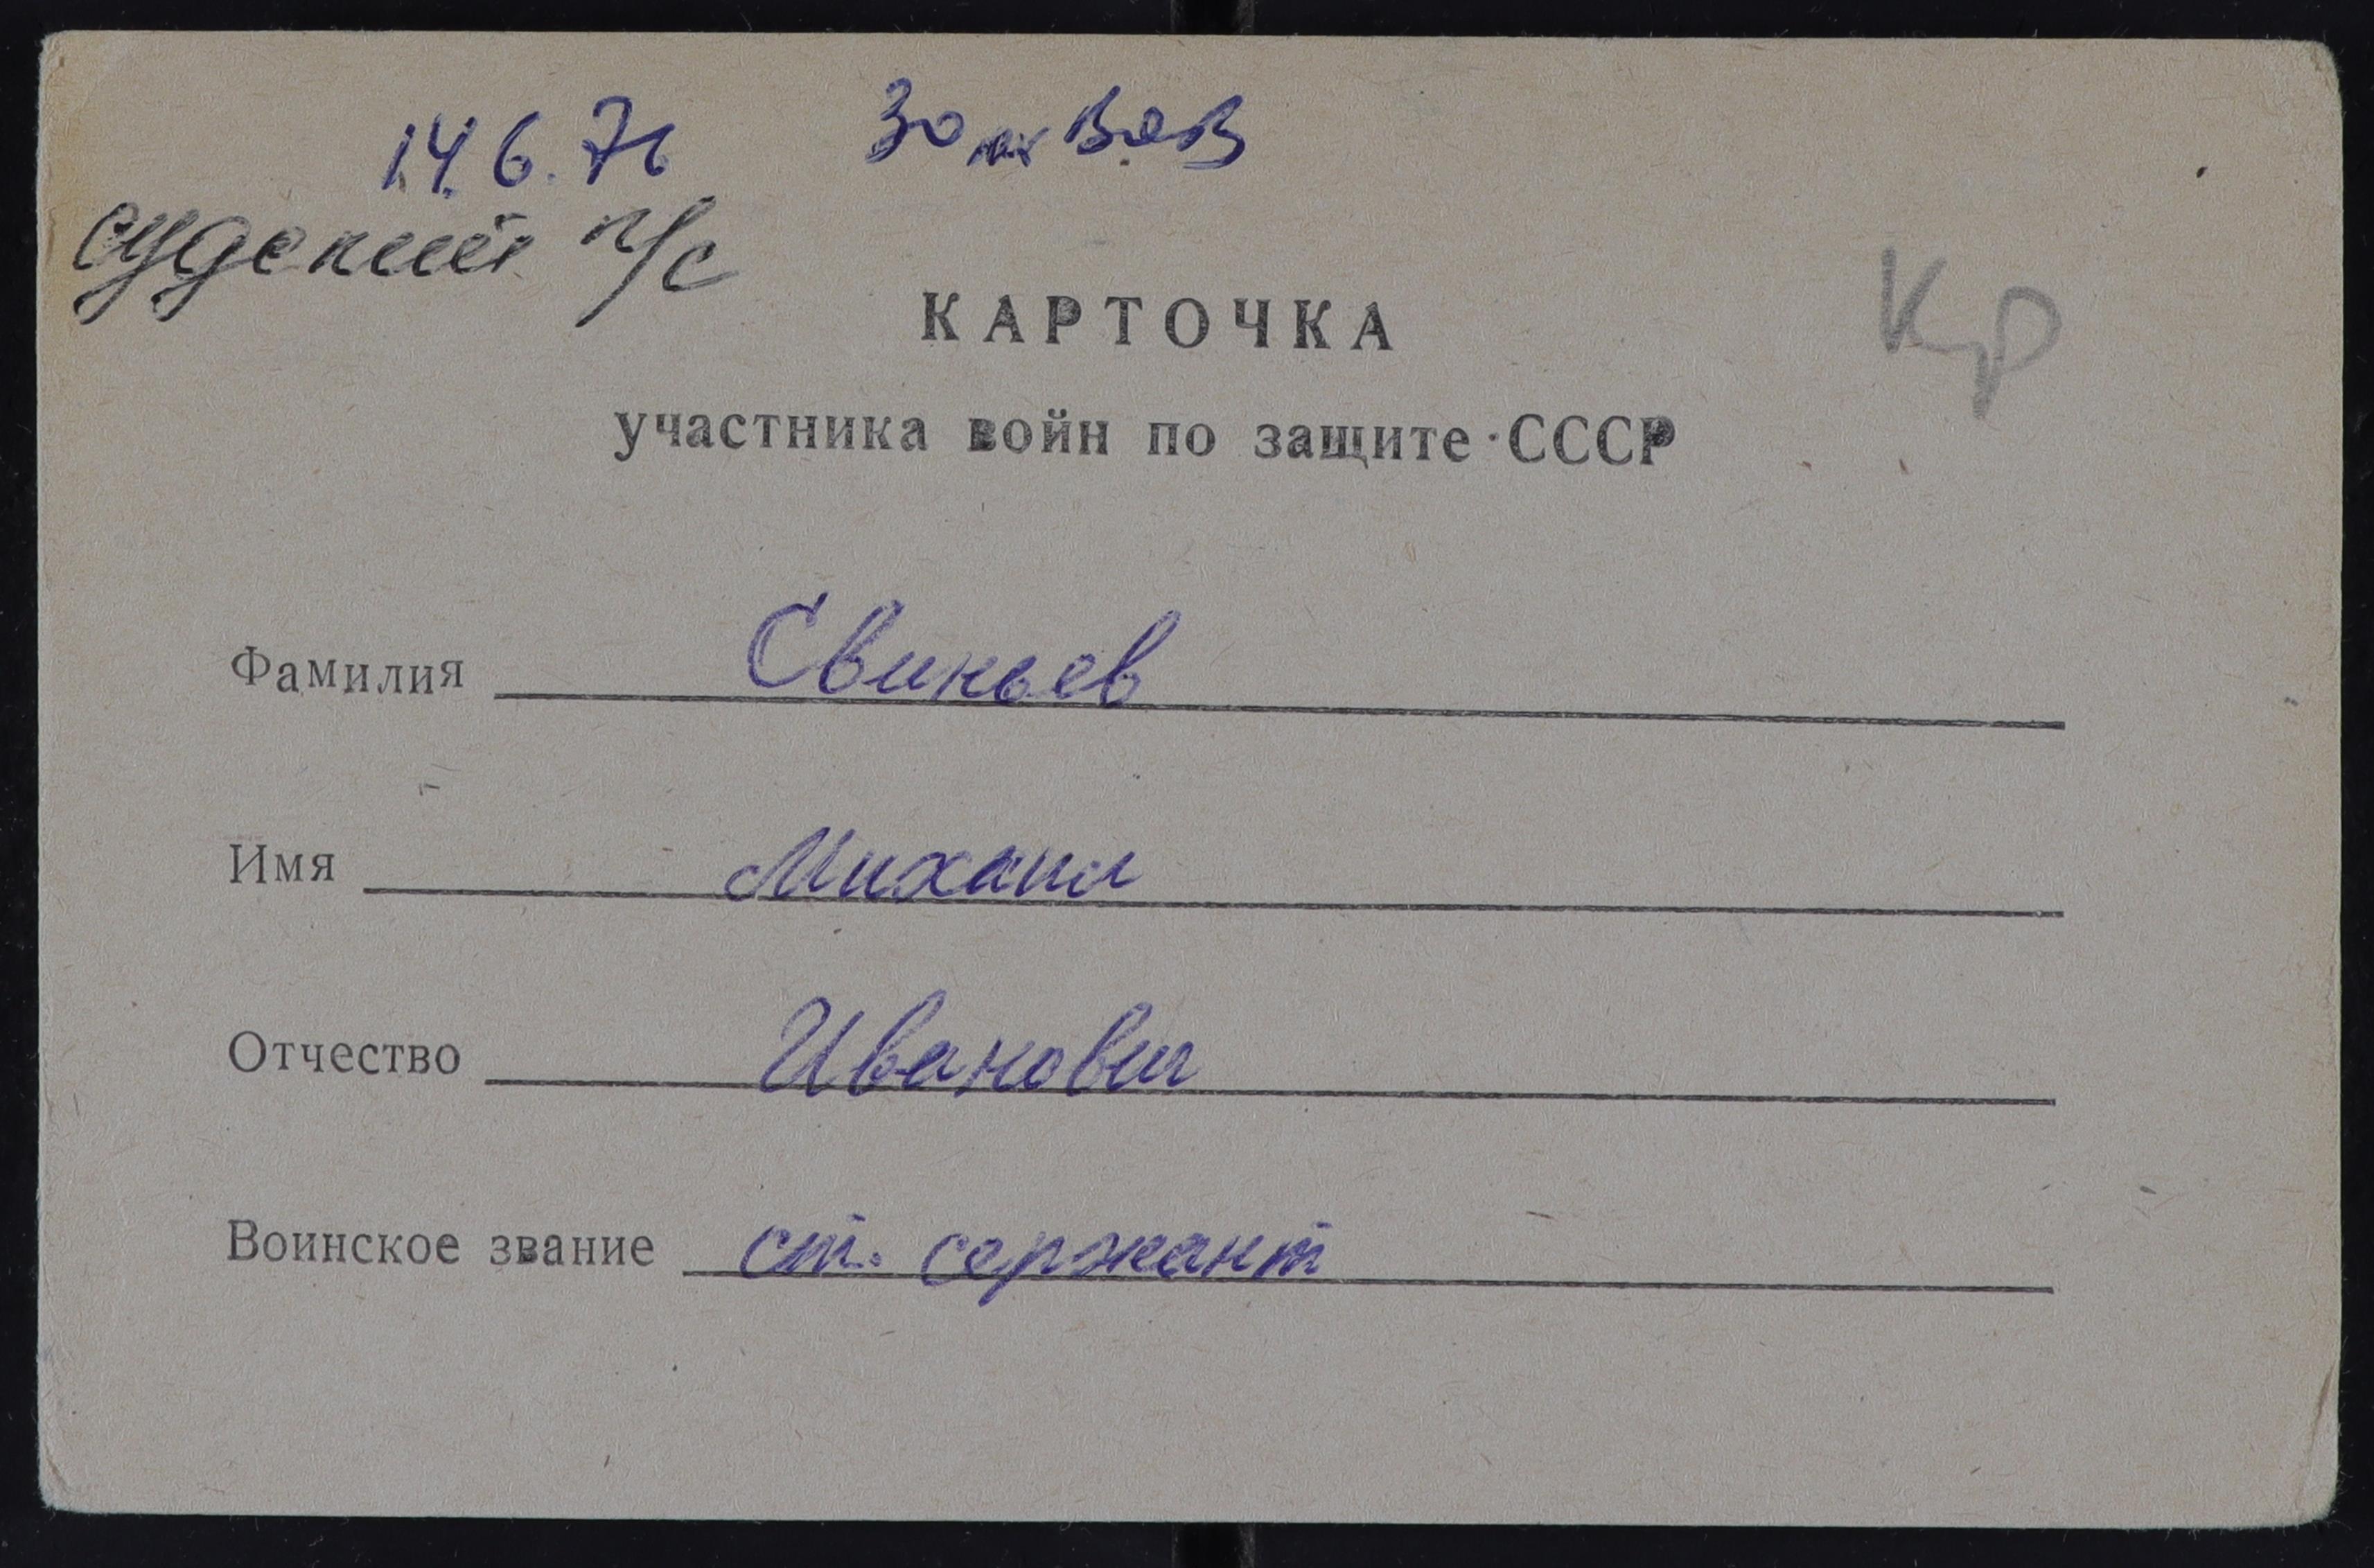 14.6.71
судский п/с
Кр
КАРТОЧКА
участника войн по защите СССР
Фамилия Свиньев
Имя Михаил
Отчество Иванович
Воинское звание ст. сержант